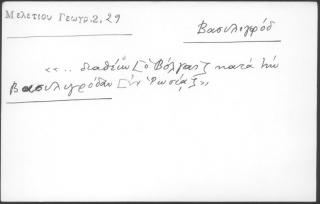 Μελετίου Γεωγρ.2, 29
Βασυλιγρόδ
«.. διαθέει [ὁ Βόλγας] κατὰ τὴν
Βασυλιγρόδαν [ἐν Ρωσίᾳ]»